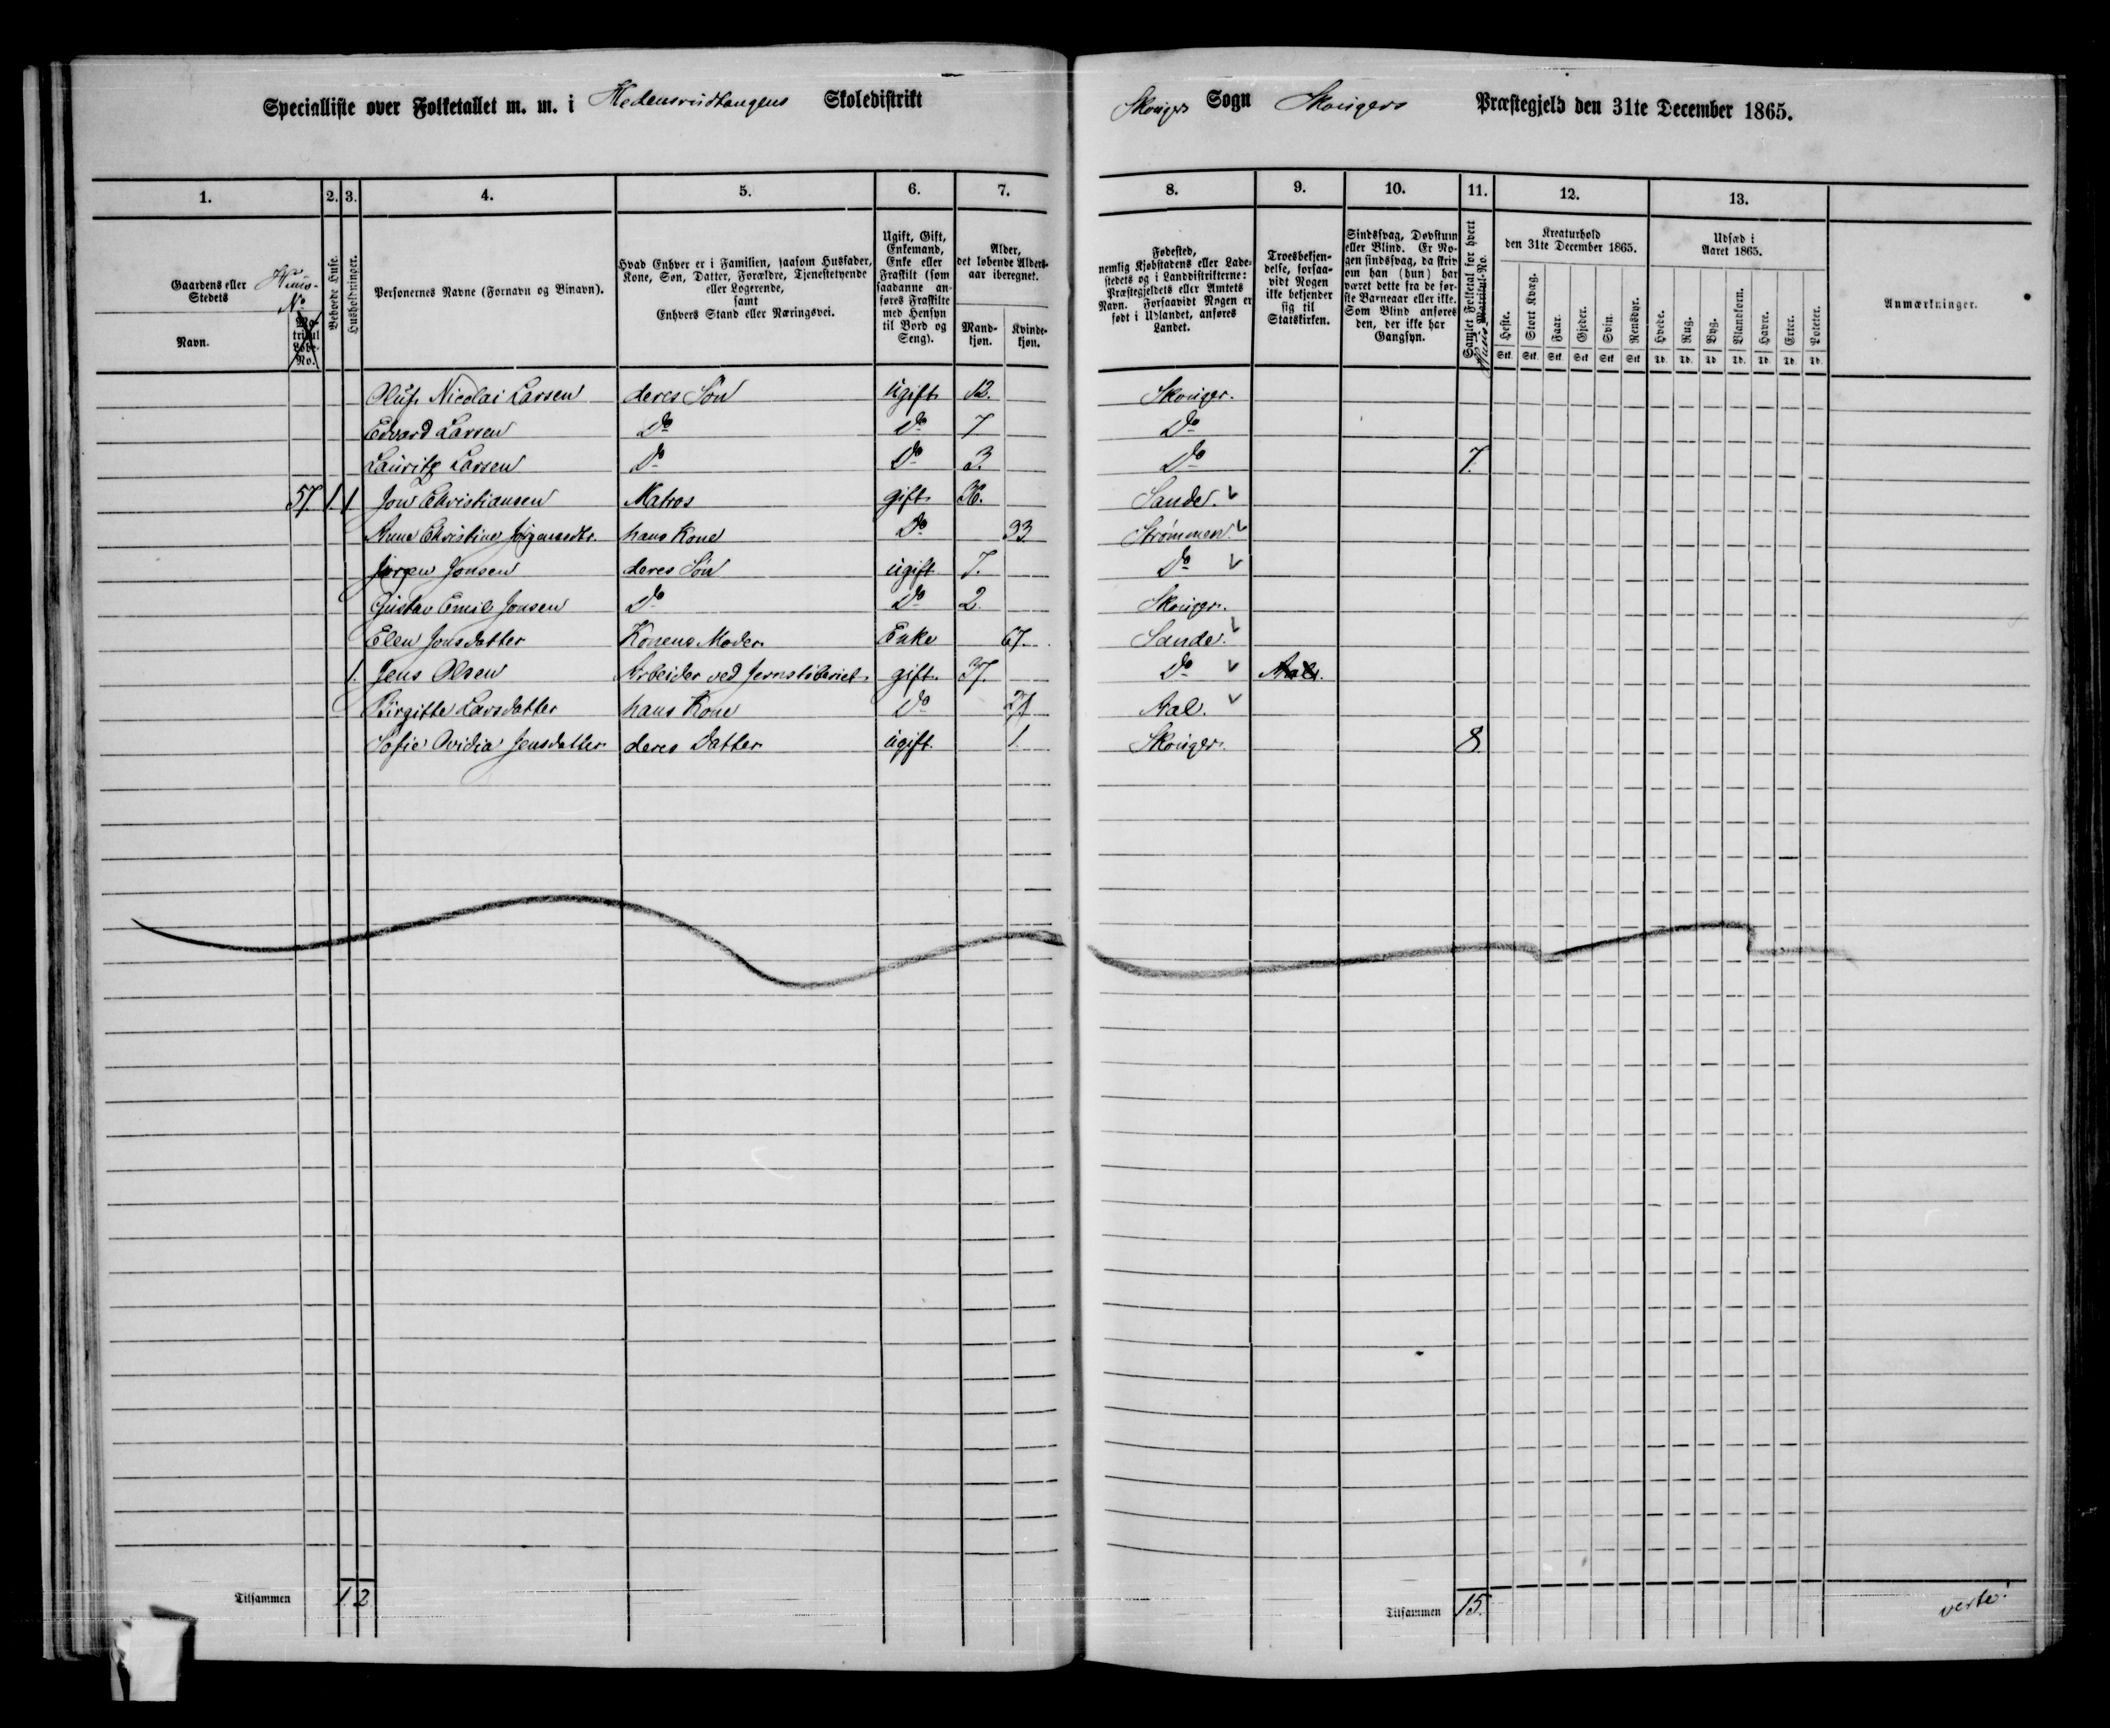 Specialliste over Folketallet m. m. i Hedensrudtangens Skoledistrikt
Skouger Sogn Skougers Præstegjeld den 31te December 1865.
1. 2. 3. 4. 5. 6. 7. 8. 9. 10. 11. 12. 13.
Gaardens eller Stedets
Huus-No
Navn.
Ma-trikul Løbe-No.
Beboede Huse.
Husholdninger.
Personernes Navne (Fornavn og Binavn).
Hvad Enhver er i Familien, saasom Husfader,
Kone, Søn, Datter, Forældre, Tjenestetyende
eller Logerende,
samt
Enhvers Stand eller Næringsvei.
Ugift, Gift,
Enkemand,
Enke eller
Fraskilt (som
saadanne an-
føres Fraskilte
med Hensyn
til Bord og
Seng).
Alder,
det løbende Alders-
aar iberegnet.
Mand-kjøn.
Kvinde-kjøn.
Fødested,
nemlig Kjøbstadens eller Lade-
stedets og i Landdistrikterne:
Præstegjeldets eller Amtets
Navn. Forsaavidt Nogen er
født i Udlandet, anføres
Landet.
Troesbekjen-
delse, forsaa-
vidt Nogen
ikke bekjender
sig til
Statskirken.
Sindssvag, Døvstum
eller Blind. Er No-
gen sindssvag, da skriv
om han (hun) har
været dette fra de før-
ste Barneaar eller ikke.
Som Blind anføres
den, der ikke har
Gangsyn.
Samlet Folketal for hvert Matrikul-No.
Huus
Kreaturhold
den 31te December 1865.
Heste. Stort Kvæg. Faar. Gjeder. Svin. Rensdyr.
Stk. Stk. Stk. Stk. Stk. Stk.
Udsæd i
Aaret 1865.
Hvede. Rug. Byg. Blandkorn. Havre. Erter. Poteter.
Td. Td. Td. Td. Td. Td. Td.
Anmærkninger.
Oluf Nicolai Larsen deres Søn ugift 12. Skouger.
Edvard Larsen Do Do 7 Do
Lauritz Larsen Do Do 3. Do 7.
57. 1. 1. Jon Christiansen Matros gift 36. Sande.
Anne Christine Jørgensdtr. hans Kone Do 33 Strømmen.
Jørgen Jonsen deres Søn ugift 7. Do
Gustav Emil Jonsen Do Do 2. Skouger.
Elen Jonsdatter Konens Moder Enke 67. Sande.
1. Jens Olsen Arbeider ved Jernstøberiet gift 37. Do Aal.
Birgitte Larsdatter hans Kone Do 27 Aal.
Sofie Ovidia Jensdatter deres Datter ugift 1. Skouger. 8
Tilsammen 1 2
Tilsammen 15.
verte!